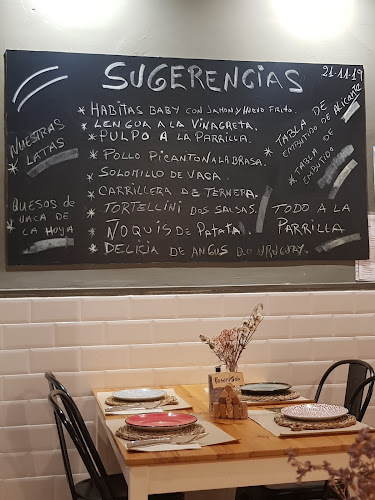 SUGERENCIAS
21-11-19
* HABITAS BABY CON JAMON Y HUEVO FRITO.
* LENGUA A LA VINAGRETA.
* PULPO A LA PARRILLA.
* POLLO PICANTON A LA BRASA.
* SOLOMILLO DE VACA.
* CARRILLERA DE TERNERA.
* TORTELLINI DOS SALSAS.
* ÑOQUIS DE PATATA.
* DELICIA DE ANGUS DO URUGUAY.
NUESTRAS
* LATAS
QUESOS DE
* VACA DE
LA HOYA
* TABLA DE
EMBUTIDO DE ALICANTE
* TABLA DE
EMBUTIDO
TODO A LA
PARRILLA
Reservado